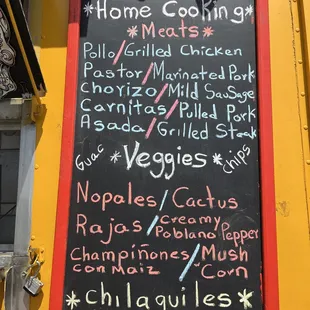 *Home Cooking*
*Meats*
Pollo/Grilled Chicken
Pastor/Marinated Pork
Chorizo/Mild Sausage
Carnitas/Pulled Pork
Asada/Grilled Steak
Guac *Veggies* chips
Nopales/Cactus
Rajas/Creamy Poblano Pepper
Champiñones/Mush
con Maiz /Corn
*Chilaquiles*